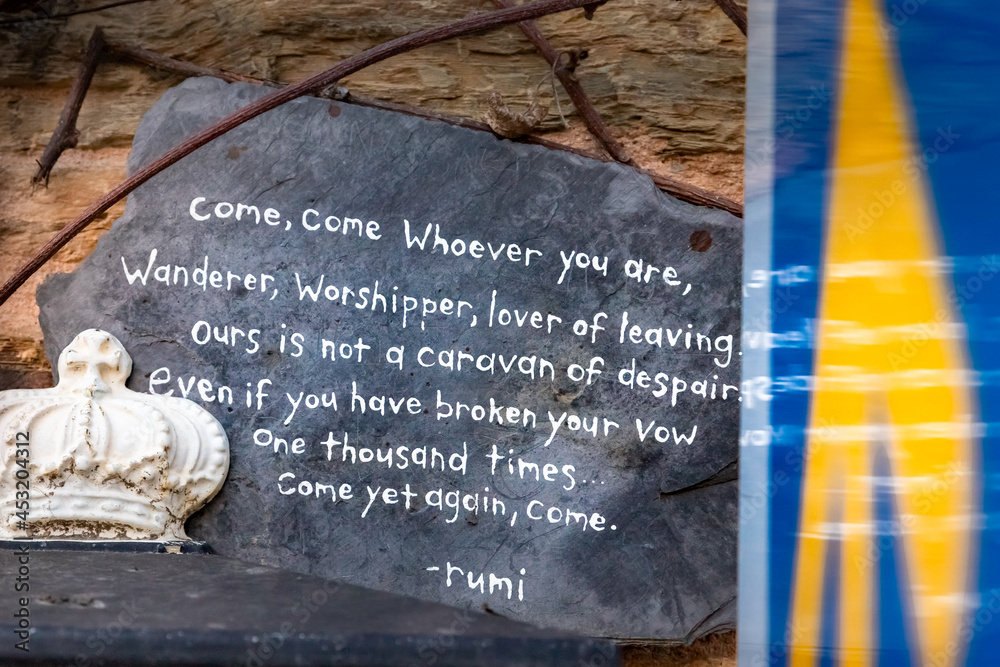 come, come Whoever you are,
Wanderer, Worshipper, lover of leaving.
ours is not a caravan of despair.
even if you have broken your vow
one thousand times...
come yet again, come.
-rumi
Adobe Stock | #453204312